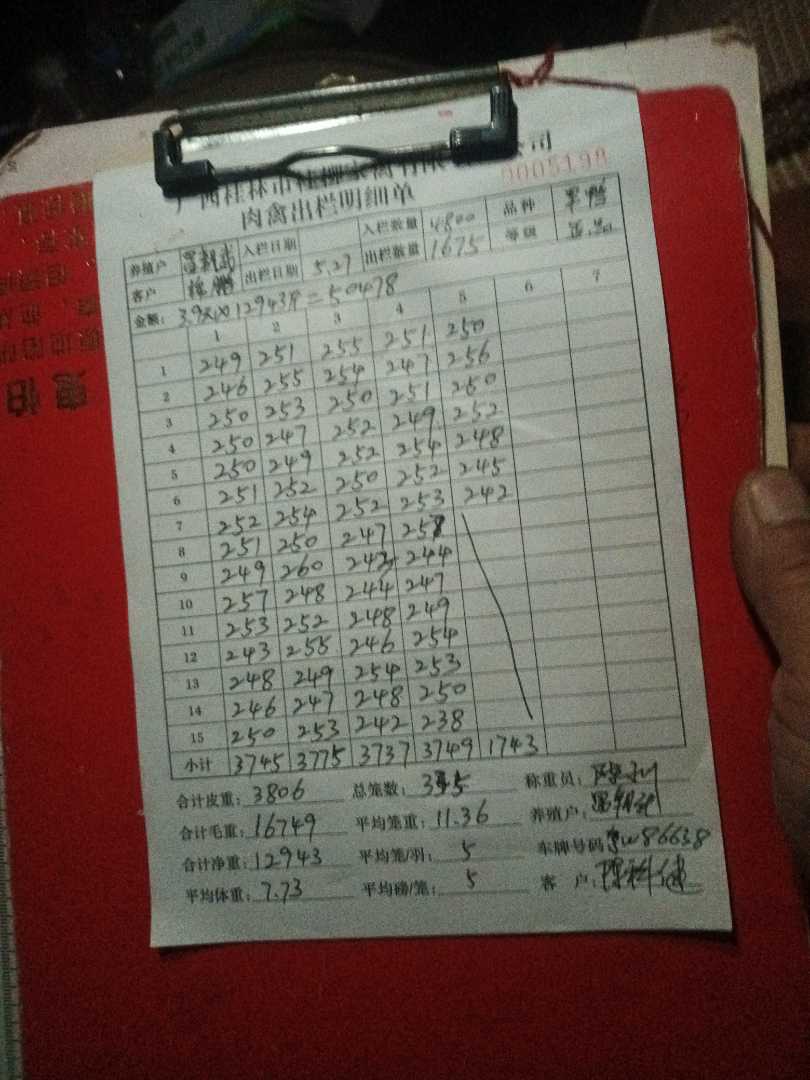 广西桂林市桂柳家禽有限 公司
0005198
肉禽出栏明细单
养殖户 入栏日期 入栏数量 4800 品种
客户 出栏日期 5.27 出栏数量 1675 等级
金额: 3.9 × 12943斤 = 50478
1 2 3 4 5 6 7
1 249 251 255 251 250
2 246 255 254 247 256
3 250 253 250 251 260
4 250 247 252 249 252
5 250 249 252 254 248
6 251 252 250 252 245
7 252 254 252 253 242
8 251 250 247
9 249 260 244
10 257 248 244 247
11 253 252 248 249
12 243 255 246 254
13 248 249 254 253
14 246 247 248 250
15 250 253 242 238
小计 3745 3775 3737 3749 1743
合计皮重: 3806 总笼数: 称重员:
合计毛重: 16749 平均笼重: 11.36 养殖户:
合计净重: 12943 平均笼/羽: 5 车牌号码 W86638
平均体重: 7.73 平均磅/笼: 5 客 户: